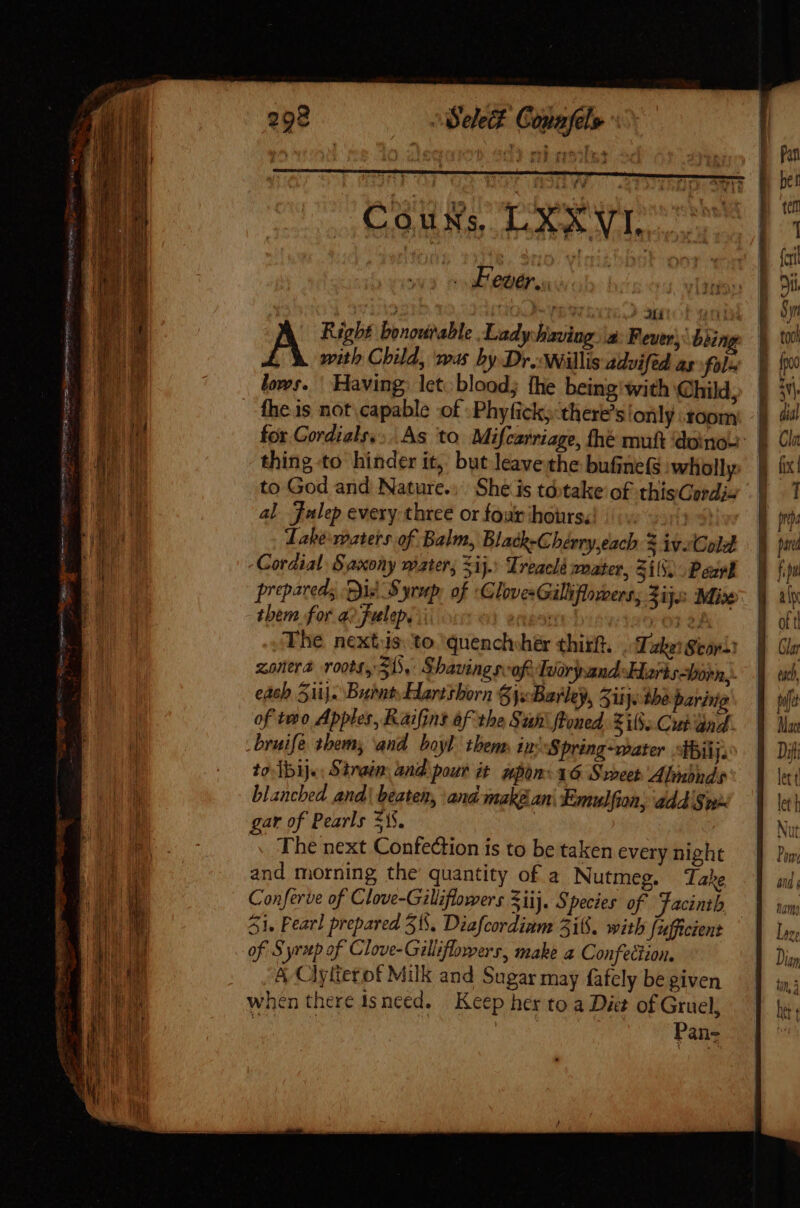 298 Select Counſels
Couns. LXXVI.
Fever.
A Right honourable Lady having a Fever, being
with Child, was by Dr. Willis adviſed as fol-
lows. Having let blood; ſhe being with Child,
ſhe is not capable of Phyſick, there's only room
for Cordials. As to Miſcarriage, ſhe muſt do no-
thing to hinder it, but leave the buſineſs wholly
to God and Nature. She is to take of this Cordi-
al Julep every three or four hours.
Take waters of Balm, Black-Cherry, each ℥iv. Cold
Cordial Saxony water, ℥ij. Treacle water, ℥iſs. Pearl
prepared, ʒiſ. Syrup of Clove-Gilliflowers, ℥ijs. Mix
them for a Julep.
The next is to quench her thirſt. Take Scor-
zonera roots, ℥iſs. Shavings of Ivory and Harts-horn,
each ʒiij. Burnt Hartshorn ʒjs. Barley, ʒiij. the paring
of two Apples, Raiſins of the Sun ſtoned ℥iſs. Cut and
bruiſe them, and boyl them in Spring-water ℔iij.
to ℔ij. Strain and pour it upon 16 Sweet Almonds
blanched and beaten, and make an Emulſion, add Su-
gar of Pearls ℥ſs.
The next Confection is to be taken every night
and morning the quantity of a Nutmeg. Take
Conſerve of Clove-Gilliflowers ℥iij. Species of Jacinth
ʒi. Pearl prepared ʒſs. Diaſcordium ʒiſs. with ſufficient
of Syrup of Clove-Gilliflowers, make a Confection.
A Clyſter of Milk and Sugar may ſafely be given
when there is need. Keep her to a Diet of Gruel,
Pan-